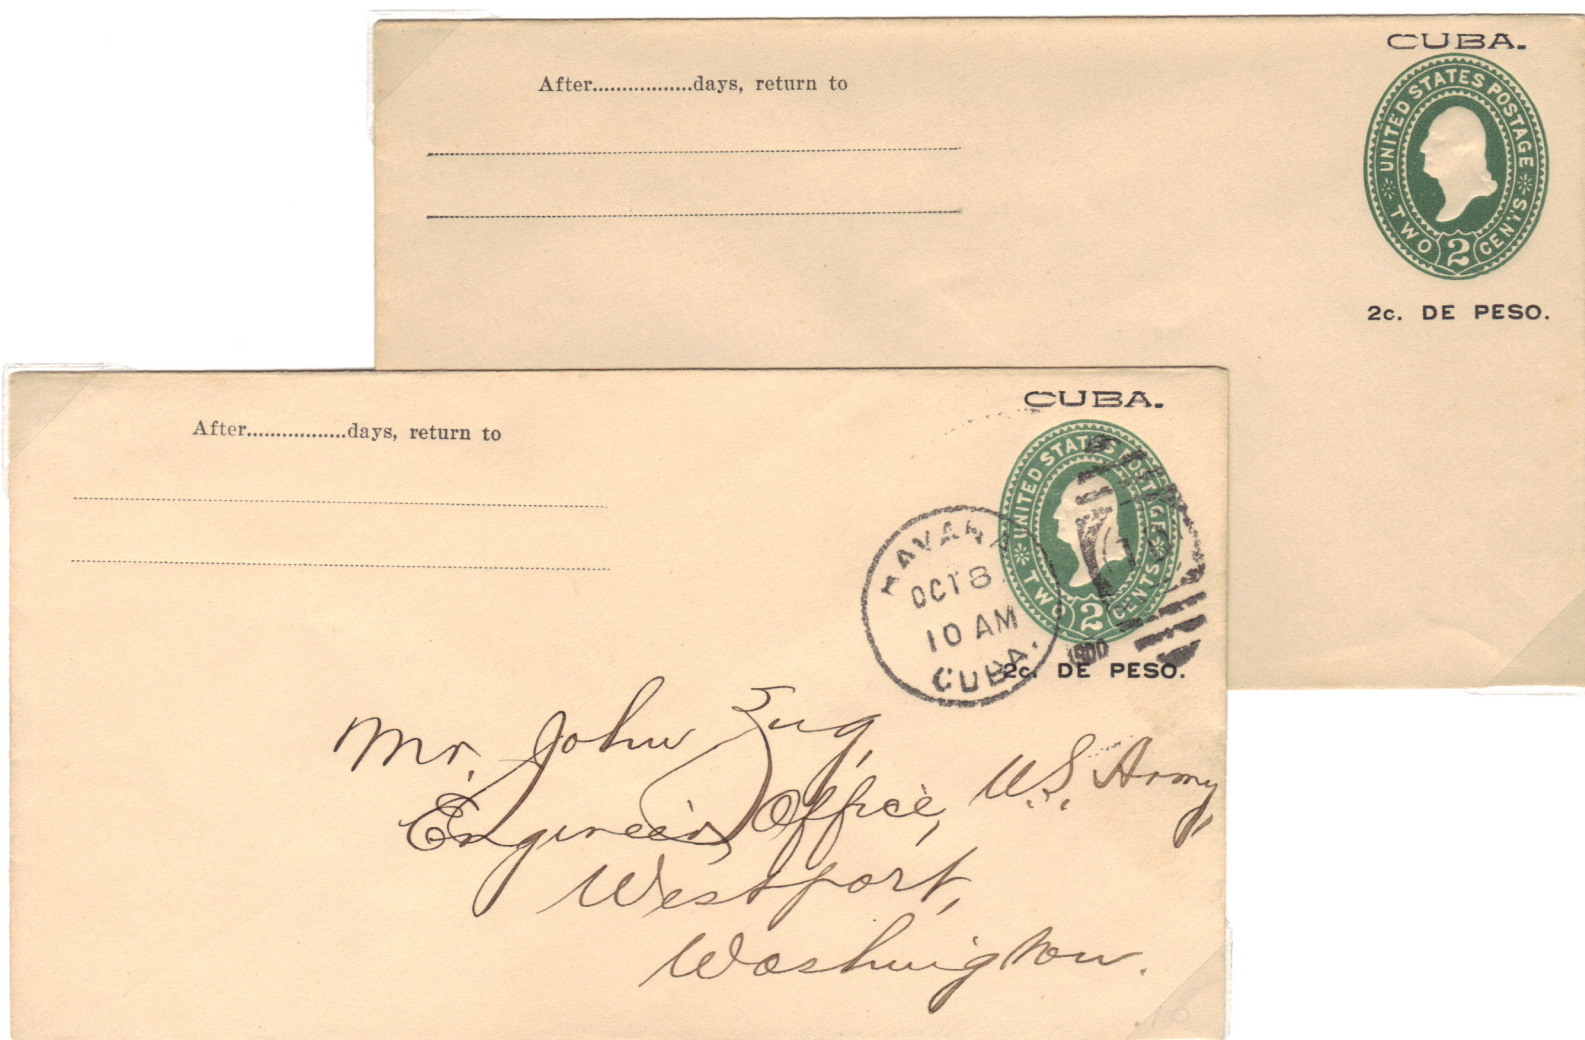 CUBA.
After.................days, return to
UNITED STATES POSTAGE
TWO 2 CENTS
2c. DE PESO.
CUBA.
After.................days, return to
UNITED STATES POSTAGE
TWO 2 CENTS
HAVANA
OCT 8
10 AM
CUBA.
1900
2c. DE PESO.
Mr. John Zug,
Engineer Office, U.S. Army,
Westport,
Washington.
.10